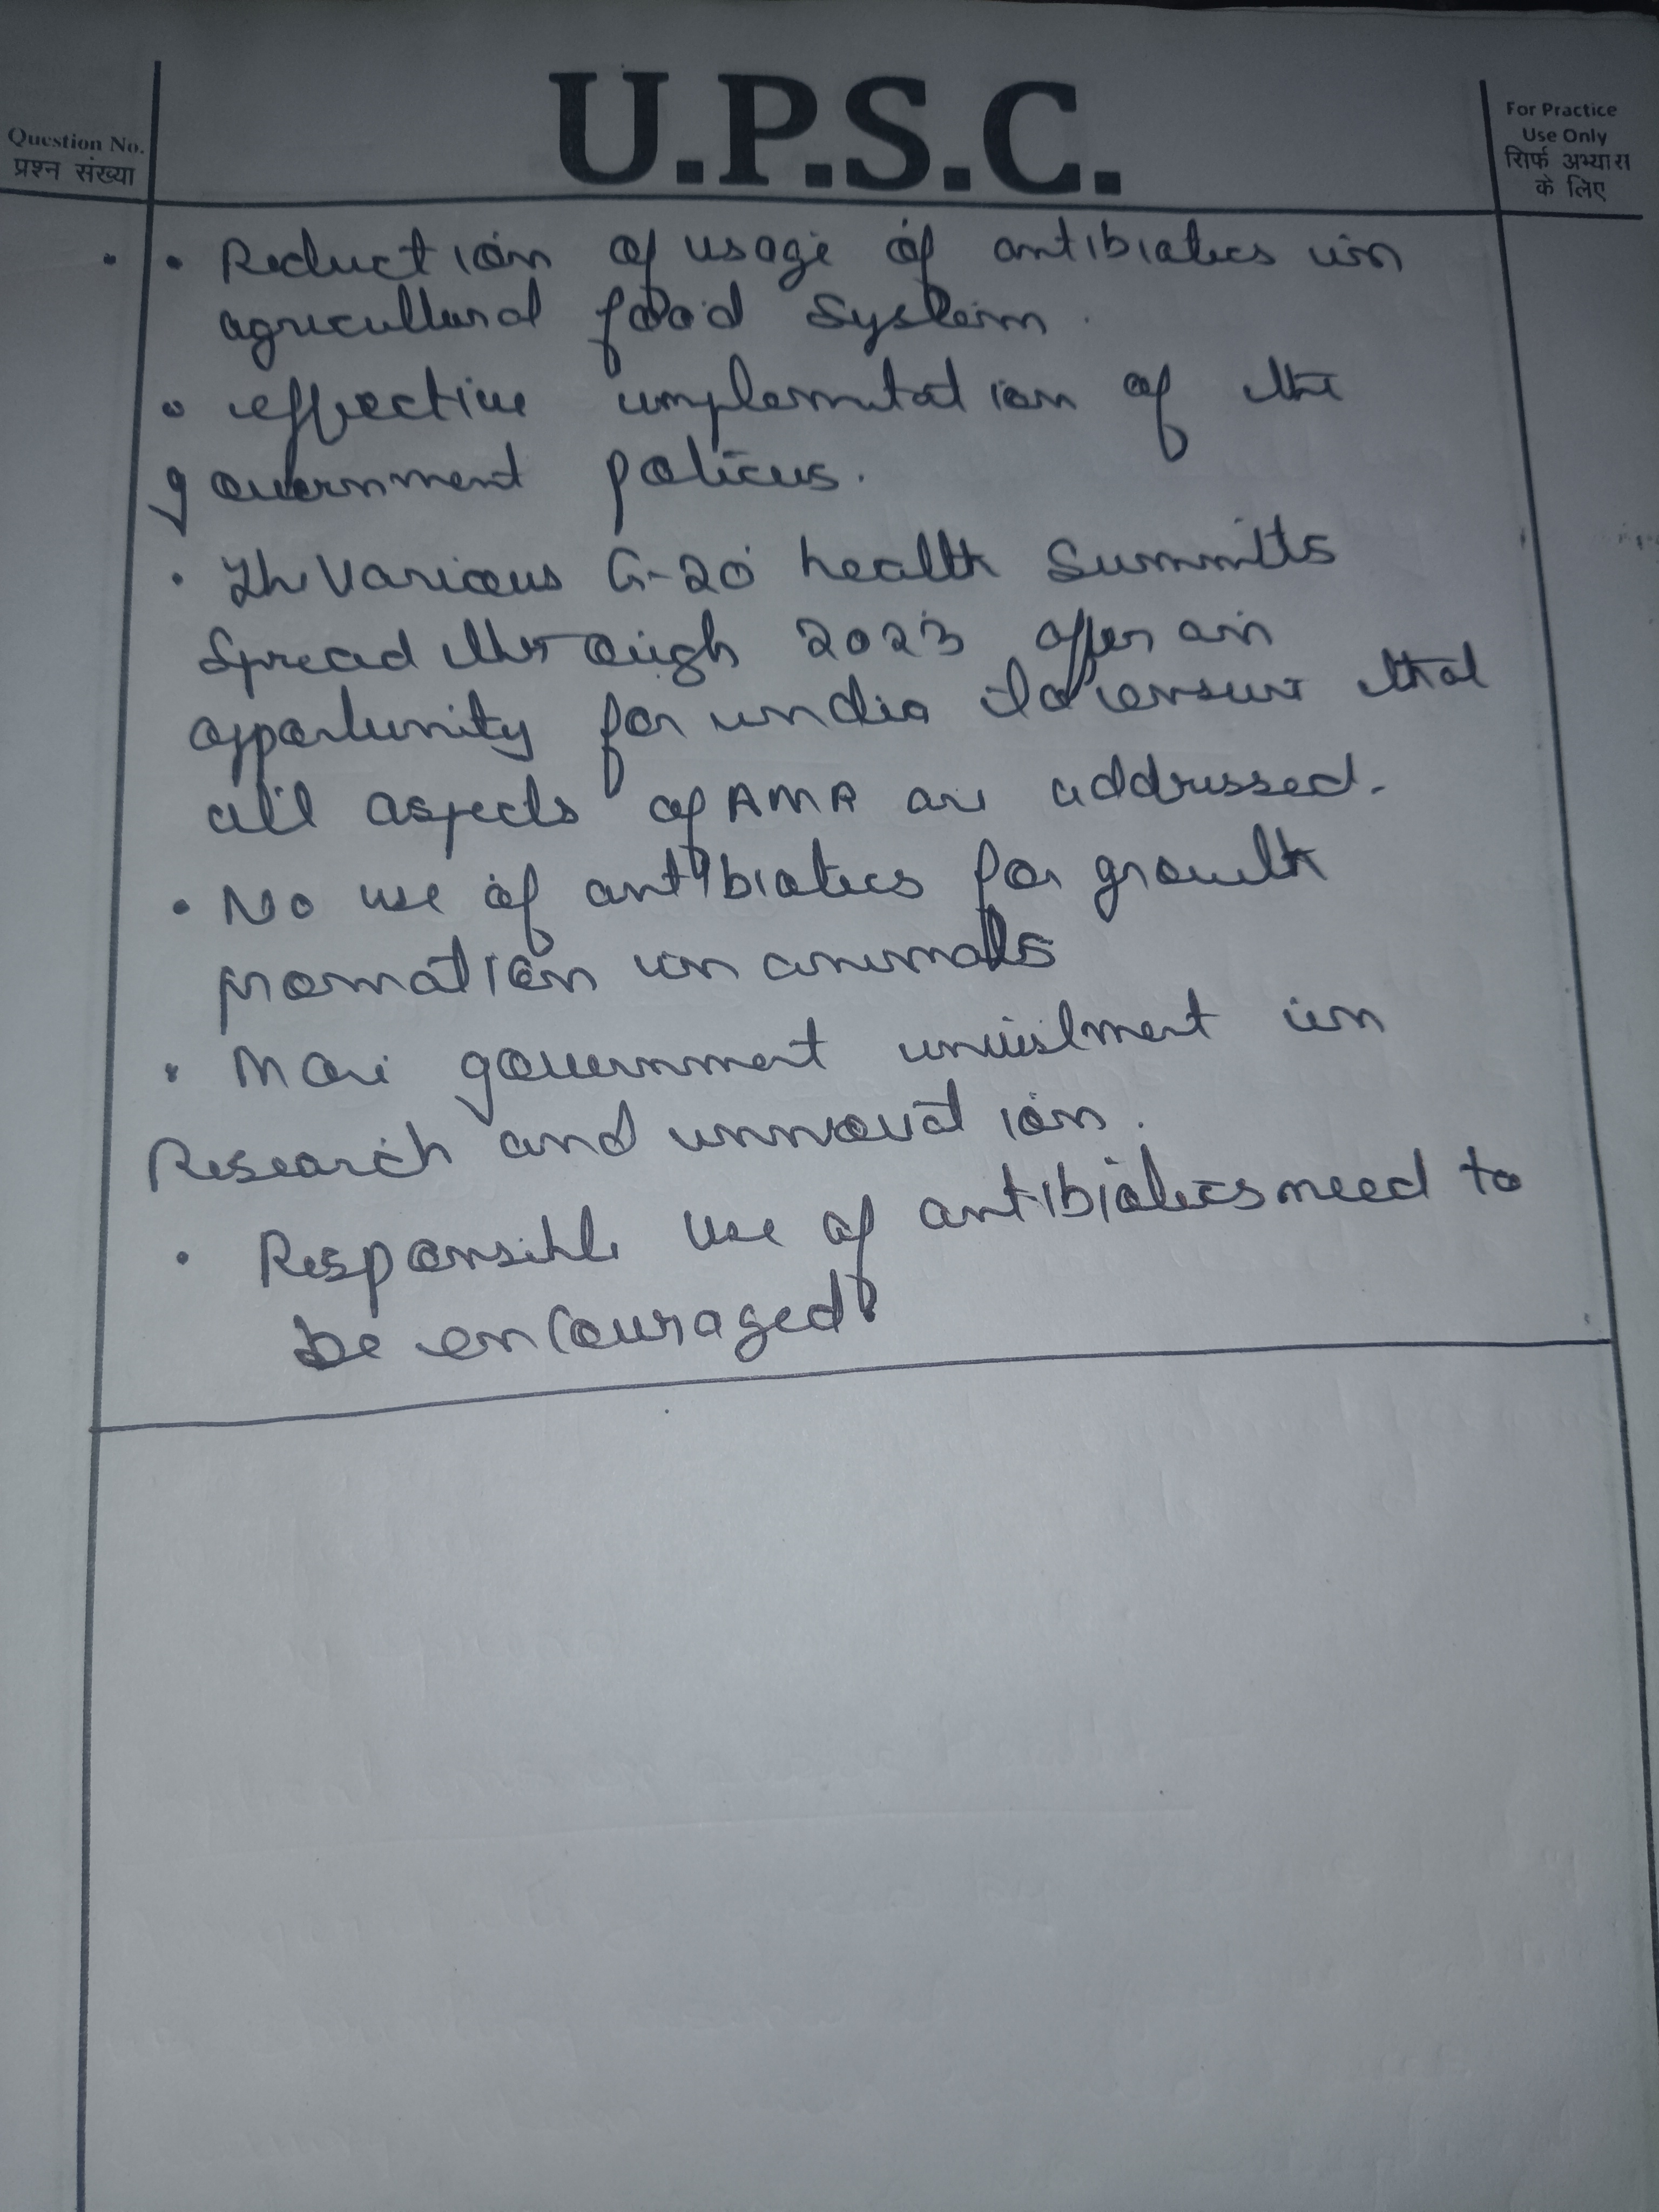 U.P.S.C.
Question No.
प्रश्न संख्या
For Practice
Use Only
सिर्फ अभ्यास
के लिए
• • Reduction of usage of antibiotics in
agricultural food system.
• effective implemntation of the
government policies.
• The Various G-20 health Summits
Spread through 2023 offer an
opportunity for india to ensure that
all aspects of AMR are addressed.
• No use of antibiotics for growth
promotion in animals
• More government investment in
Research and innovation.
• Responsible use of antibiotics need to
be encouraged.